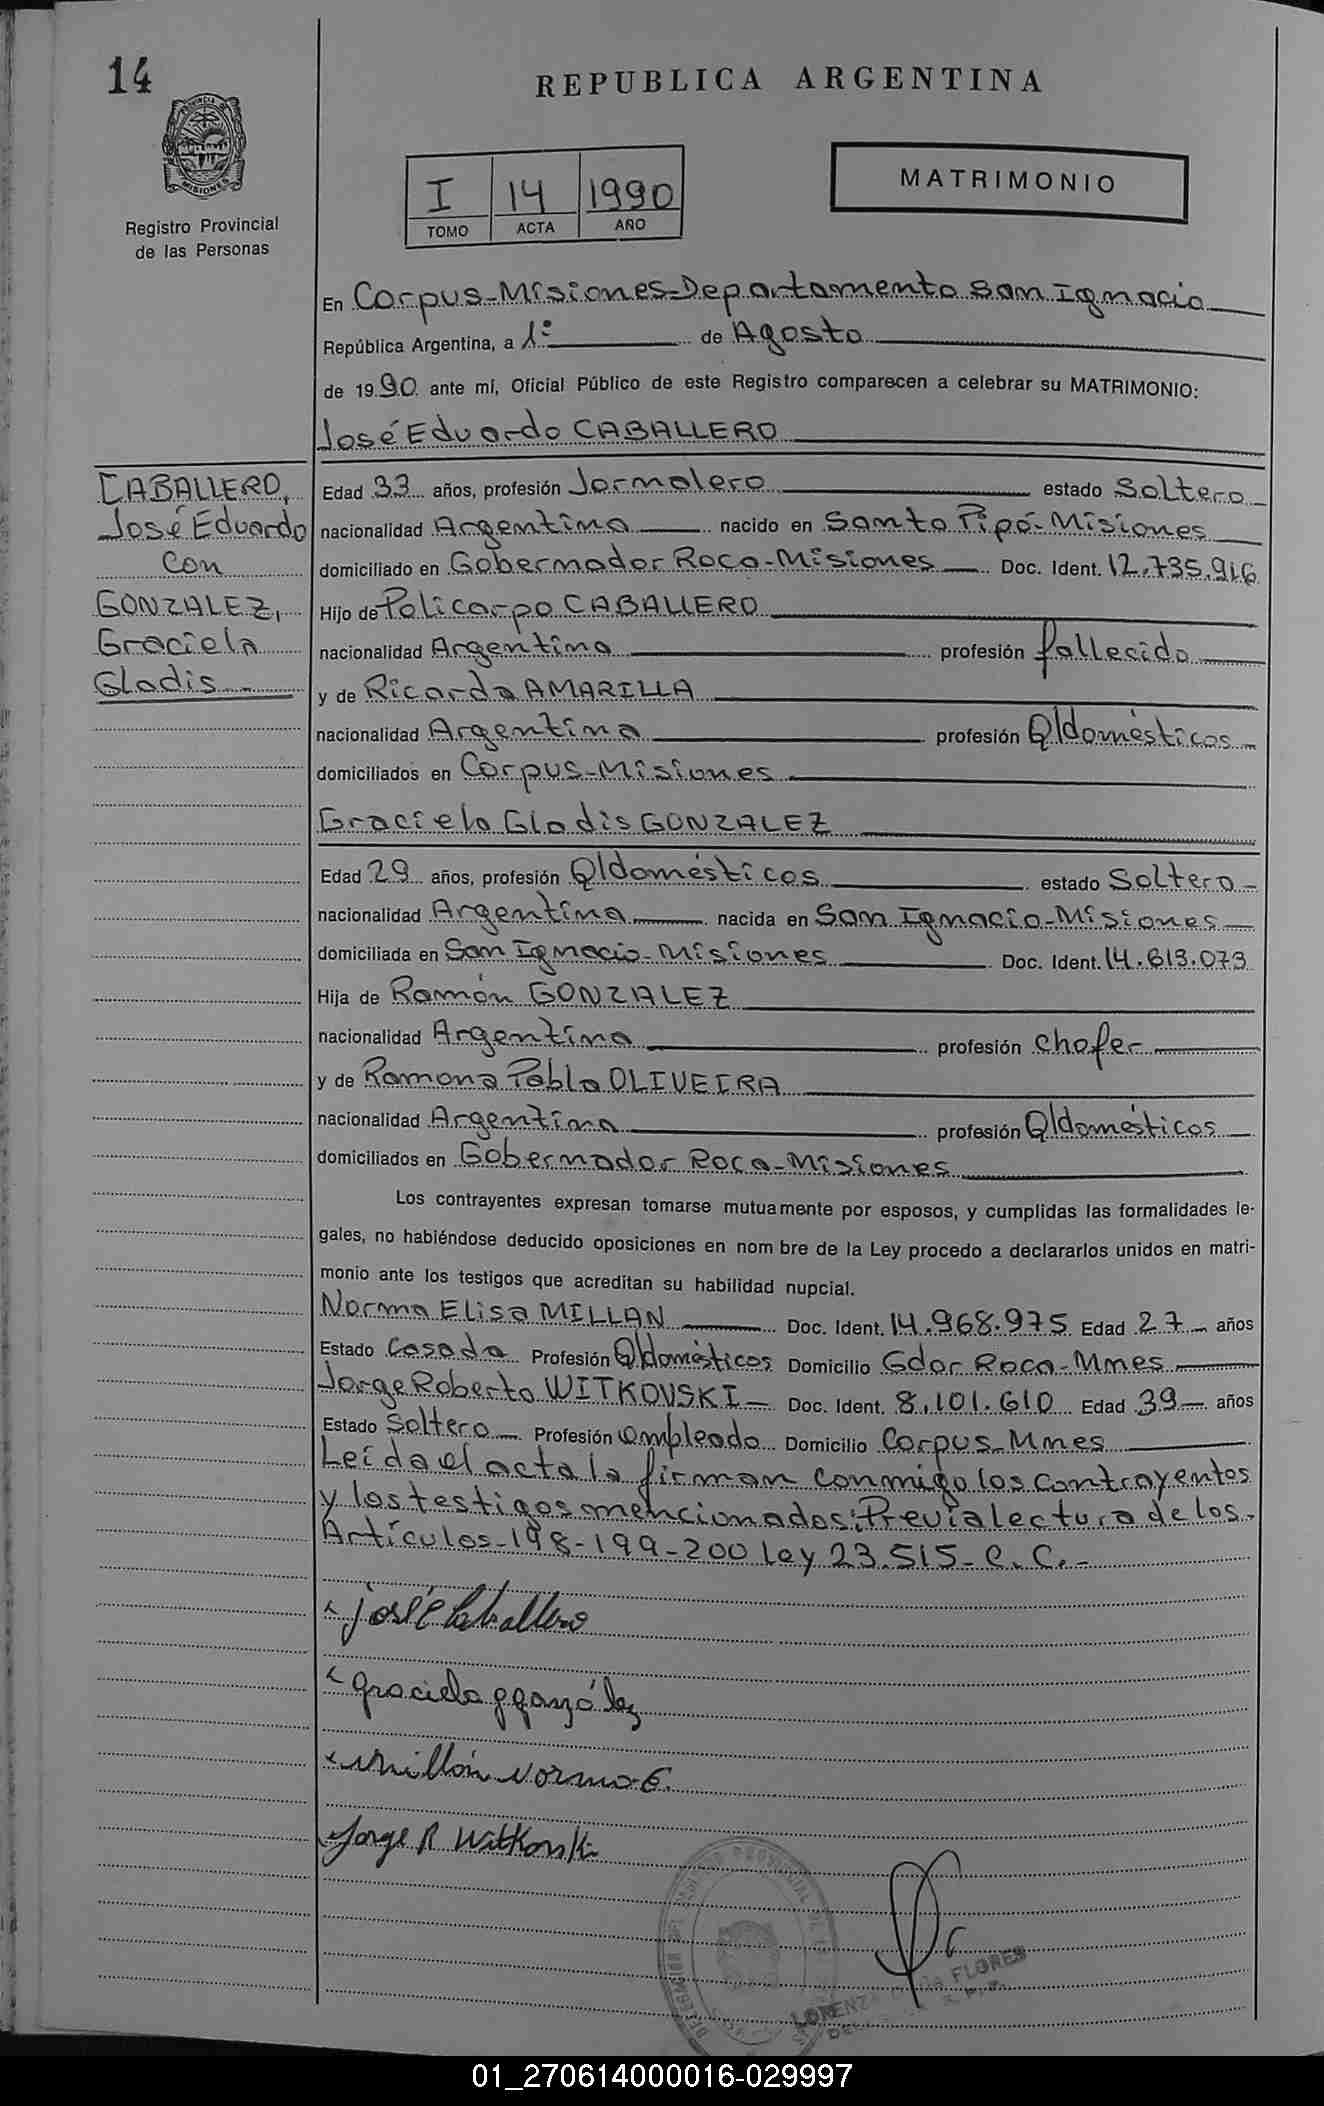 14
REPUBLICA ARGENTINA
PROVINCIA DE
MISIONES
Registro Provincial
de las Personas
I 14 1990
TOMO ACTA AÑO
MATRIMONIO
En Corpus-Misiones-Departamento San Ignacio
República Argentina, a 1º de Agosto
de 1990 ante mí, Oficial Público de este Registro comparecen a celebrar su MATRIMONIO:
José Eduardo CABALLERO
CABALLERO,
José Eduardo
con
GONZALEZ,
Graciela
Gladis
Edad 33 años, profesión Jornalero estado Soltero
nacionalidad Argentina nacido en Santo Pipó-Misiones
domiciliado en Gobernador Roca-Misiones Doc. Ident. 12.735.916
Hijo de Policarpo CABALLERO
nacionalidad Argentina profesión fallecido
y de Ricarda AMARILLA
nacionalidad Argentina profesión Q/domésticos
domiciliados en Corpus-Misiones
Graciela Gladis GONZALEZ
Edad 29 años, profesión Q/domésticos estado Soltera
nacionalidad Argentina nacida en San Ignacio-Misiones
domiciliada en San Ignacio-Misiones Doc. Ident. 14.613.073
Hija de Ramón GONZALEZ
nacionalidad Argentina profesión chofer
y de Ramona Pabla OLIVEIRA
nacionalidad Argentina profesión Q/domésticos
domiciliados en Gobernador Roca-Misiones
Los contrayentes expresan tomarse mutuamente por esposos, y cumplidas las formalidades le-
gales, no habiéndose deducido oposiciones en nom bre de la Ley procedo a declararlos unidos en matri-
monio ante los testigos que acreditan su habilidad nupcial.
Norma Elisa MILLAN Doc. Ident. 14.968.975 Edad 27 años
Estado Casada Profesión Q/domésticos Domicilio Gdor Roca-Mnes
Jorge Roberto WITKOVSKI Doc. Ident. 8.101.610 Edad 39 años
Estado Soltero Profesión empleado Domicilio Corpus-Mnes
Leída el acta la firman conmigo los contrayentes
y los testigos mencionados; Previa lectura de los
Artículos-198-199-200 ley 23.515-C.C.-
José E Caballero
graciela g gonzález
Millán Norma E.
Jorge R Witkovski
FLORES
01_270614000016-029997